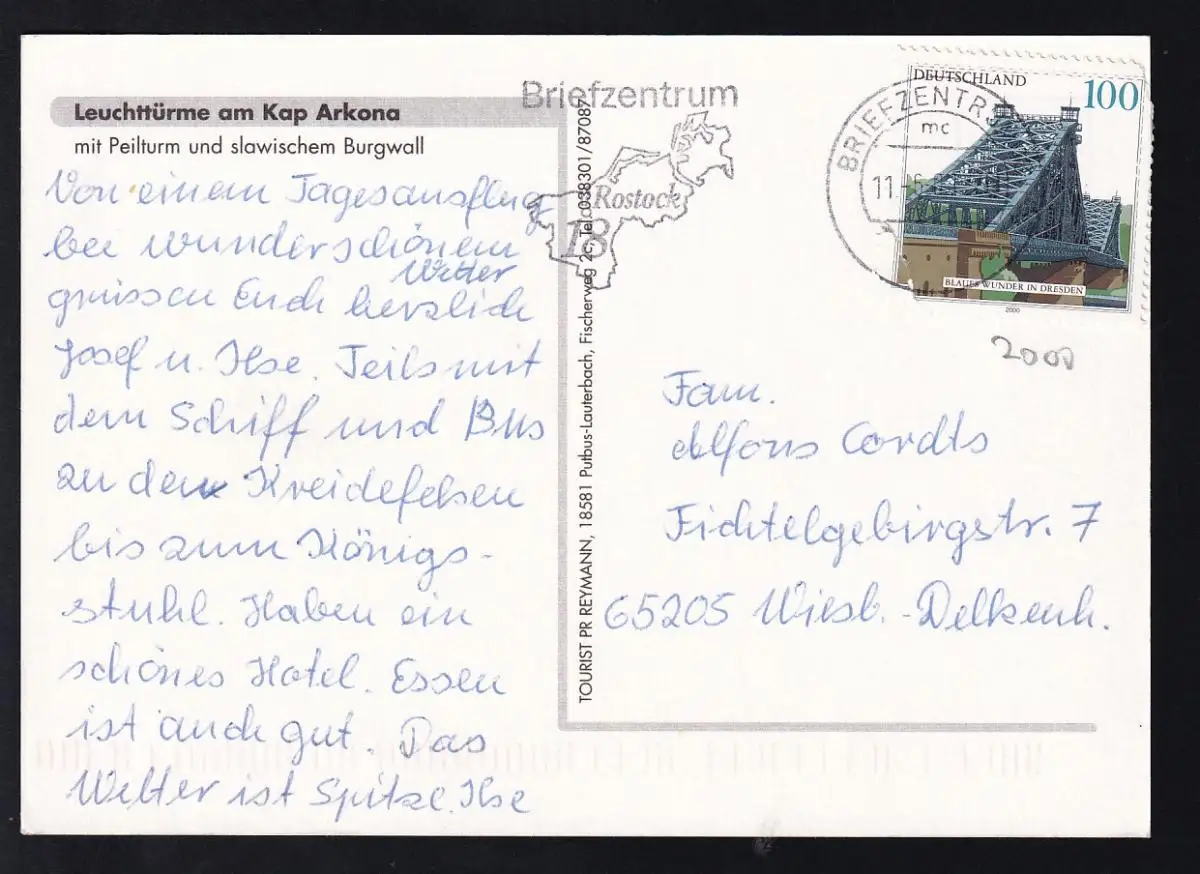 Leuchttürme am Kap Arkona
mit Peilturm und slawischem Burgwall
Von einem Tagesausflug
bei wunderschönem
Wetter
grüssen Euch herzlich
Josef u. Ilse. Teils mit
dem Schiff und Bus
zu den Kreidefelsen
bis zum Königs-
stuhl. Haben ein
schönes Hotel. Essen
ist auch gut. Das
Wetter ist Spitze. Ilse
TOURIST PR REYMANN, 18581 Putbus-Lauterbach, Fischerweg 2c, Tel. 038301/87087
Briefzentrum
Rostock
18
BRIEFZENTR
mc
11
DEUTSCHLAND
100
BLAUES WUNDER IN DRESDEN
2000
2000
Fam.
Alfons Cordts
Fichtelgebirgstr. 7
65205 Wiesb.-Delkenh.